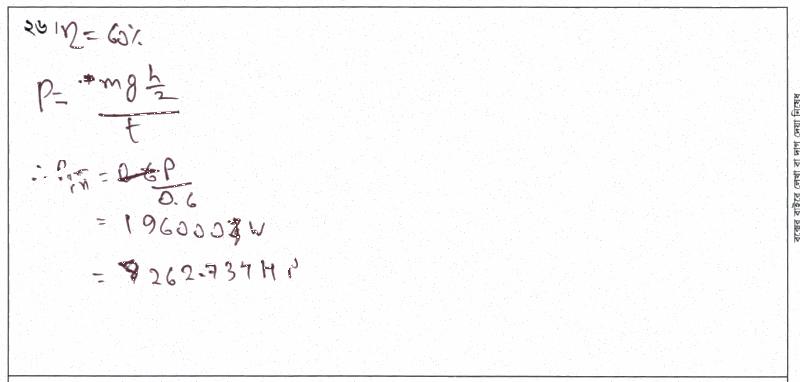 ২৬। η = 60%
P = mg h/2 / t
∴ Pin = P / 0.6
= 196000 W
= 262.734 HP
বক্সের বাইরে লেখা বা দাগ দেয়া নিষেধ